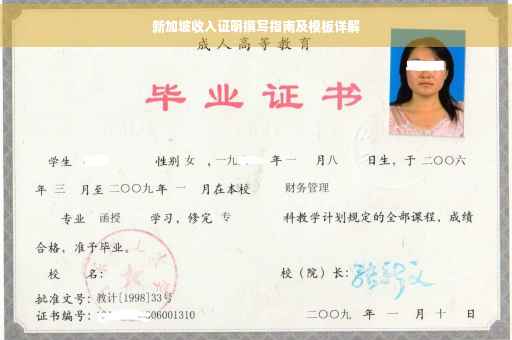 新加坡收入证明撰写指南及模板详解
成人高等教育
毕业证书
学生 性别 女 ,一九 年 一 月八 日生,于 二〇〇六
年 三 月至 二〇〇九 年 一 月在本校 财务管理
专业 函授 学习,修完 专 科教学计划规定的全部课程,成绩
合格,准予毕业。
校 名: 校(院)长:
批准文号:教计[1998]33号
证书编号: 06001310 二〇〇九 年 一 月 十 日